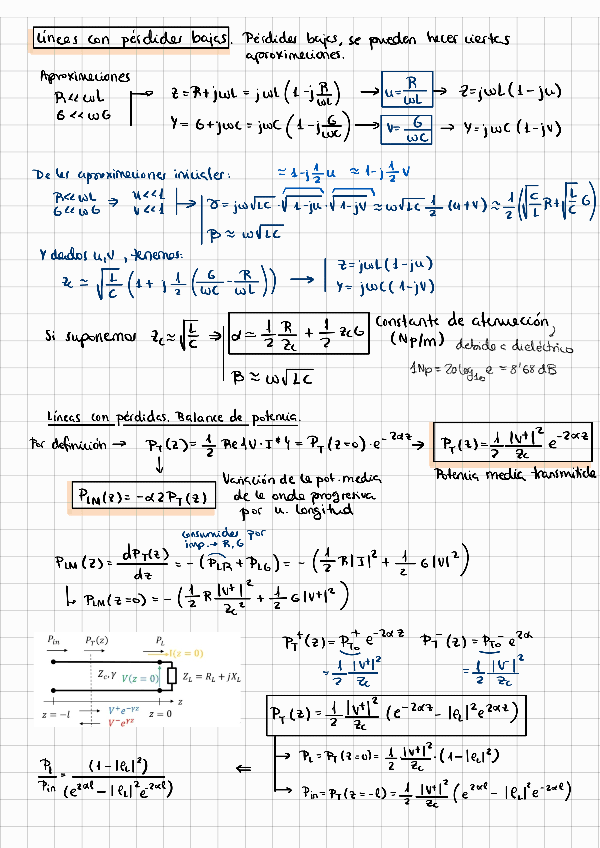 Líneas con pérdidas bajas. Pérdidas bajas, se pueden hacer ciertas
aproximaciones.
Aproximaciones
R<<ωL
G<<ωG
Z=R+jωL = jωL (1-j R/ωL) → u=R/ωL → Z=jωL(1-ju)
Y=G+jωC = jωC (1-j G/ωC) → V=G/ωC → Y=jωC(1-jV)
De las aproximaciones iniciales: ≈1-j 1/2 u ≈1-j 1/2 V
R<<ωL
G<<ωG ⇒ u<<1
V<<1 → γ=jω√LC · √1-ju · √1-jV ≈ ω√LC 1/2 (u+V) ≈ 1/2 (√C/L R+√L/C G)
β ≈ ω√LC
Y dados u,v, tenemos:
Zc ≃ √L/C (1+j 1/2 (G/ωC - R/ωL)) → Z=jωL(1-ju)
Y=jωC(1-jV)
Si suponemos Zc≈√L/C ⇒ α≃ 1/2 R/Zc + 1/2 ZcG Constante de atenuación,
(Np/m) debido a dieléctrico
β ≈ ω√LC
1Np = 20log10 e ≈ 8'68 dB
Líneas con pérdidas. Balance de potencia.
Por definición → PT(z)= 1/2 Re{V·I*} = PT(z=0)·e^-2αz → PT(z)= 1/2 |V+|²/Zc e^-2αz
Potencia media transmitida
PLM(z)=-α2PT(z) Variación de la pot. media
de la onda progresiva
por u. longitud
consumidas por
imp. → R,G
PLM(z)= dPT(z)/dz = -(PLR+PLG) = -(1/2 R|I|² + 1/2 G|V|²)
↳ PLM(z=0)= -(1/2 R |V+|²/Zc² + 1/2 G|V+|²)
Pin PT(z) PL
I(z = 0)
Zc,γ V(z = 0) ZL = RL + jXL
z
z = −l V+e−γz z = 0
V−eγz
PT+(z)=PT0+ e^-2αz PT-(z)=PT0- e^2α
≈ 1/2 |V+|²/Zc = 1/2 |V-|²/Zc
PT(z)= 1/2 |V+|²/Zc (e^-2αz - |ρL|² e^2αz)
→ PL=PT(z=0)= 1/2 |V+|²/Zc ·(1-|ρL|²)
PL/Pin = (1-|ρL|²)/(e^2αl - |ρL|² e^-2αl) ⇐
→ Pin=PT(z=-l)= 1/2 |V+|²/Zc (e^2αl - |ρL|² e^-2αl)